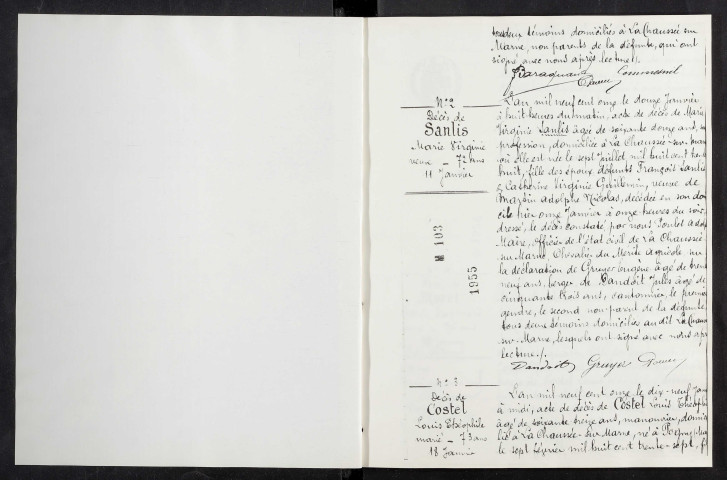 tous deux témoins domiciliés à La Chaussée sur
Marne, non parents de la défunte, qui ont
signé avec nous après lecture.
N° 2
Décès de
Sanlis
Marie Virginie
veuve – 72 ans
11 Janvier
L'an mil neuf cent onze le douze Janvier
à huit heures du matin, acte de décès de Marie
Virginie Sanlis âgée de soixante douze ans, s
profession, domiciliée à La Chaussée-sur-Marne
où elle est née le sept Juillet mil huit cent trente
huit, fille des époux défunts François Sanlis
& Catherine Virginie veuve de
Martin Adolphe Nicolas, décédée en son domi
cile hier onze Janvier à onze heures du soir,
dressé, le décès constaté par nous
Maire, officier de l'état civil de La Chaussée
sur Marne, Chevalier du Mérite agricole sur
la déclaration de Gruyer Eugène âgé de trente
neuf ans, berger et Dandoit Jules âgé de
cinquante trois ans, cantonnier, le premier
gendre, le second non parent de la défunte,
tous deux témoins domiciliés au dit La Chaus
sur-Marne, lesquels ont signé avec nous apr
lecture ./.
Dandoit Gruyer
M 103
1955
N° 3
Décès de
Costel
Louis Théophile
marié – 73 ans
18 Janvier
L'an mil neuf cent onze le dix-neuf Janv
à midi, acte de décès de Costel Louis Théophi
âgé de soixante treize ans, manouvrier, domici
lié à La Chaussée-sur-Marne, né à
le sept Février mil huit cent trente-sept, f